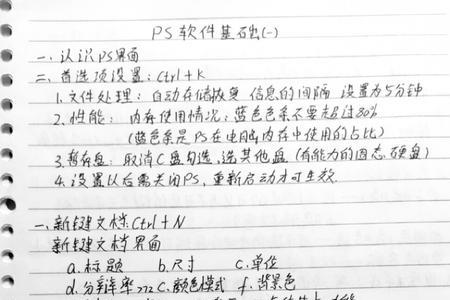 PS软件基础(一)
一、认识PS界面
二、首选项设置：Ctrl+K
1.文件处理：自动存储恢复信息的间隔 设置为5分钟
2.性能：内存使用情况：蓝色色条不要超过80%
(蓝色条是PS在电脑内存中使用的占比)
3.暂存盘：取消C盘勾选，选其他盘(有能力的固态硬盘)
4.设置以后需关闭PS，重新启动才可生效.
一、新建文档：Ctrl+N
新建文档界面
a.标题 b.尺寸 c.单位
d.分辨率 C.颜色模式 f.背景色